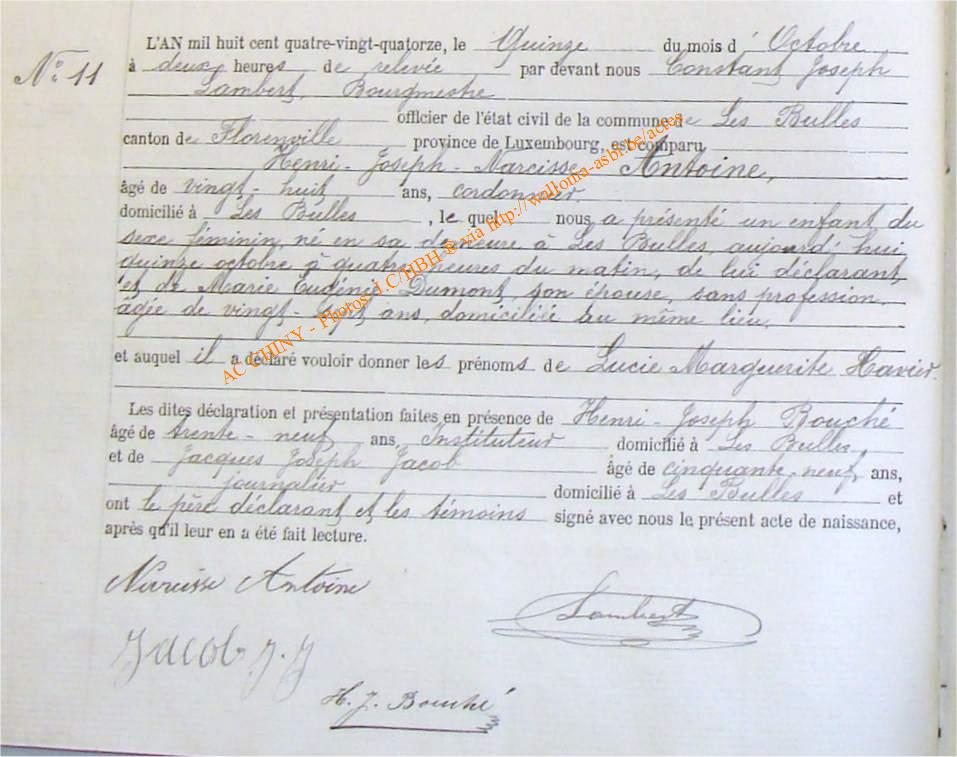 L'AN mil huit cent quatre-vingt-quatorze, le Quinze du mois d' Octobre
N° 11
à deux heures de relevée par devant nous Constant Joseph
Lambert, Bourgmestre
officier de l'état civil de la commune de Les Bulles
canton de Florenville province de Luxembourg, est comparu
Henri-Joseph-Narcisse Antoine,
âgé de vingt-huit ans, cordonnier,
domicilié à Les Bulles, le quel nous a présenté un enfant du
sexe féminin, né en sa demeure à Les Bulles, aujourd'hui
quinze octobre à quatre heures du matin, de lui déclarant
et de Marie Eugénie Dumont, son épouse, sans profession,
âgée de vingt-sept ans, domiciliée au même lieu,
et auquel il a déclaré vouloir donner les prénoms de Lucie Marguerite Xavier.
Les dites déclaration et présentation faites en présence de Henri-Joseph Bouché
âgé de trente-neuf ans, Instituteur domicilié à Les Bulles
et de Jacques Joseph Jacob âgé de cinquante-neuf ans,
journalier domicilié à Les Bulles et
ont le père déclarant et les témoins signé avec nous le présent acte de naissance,
après qu'il leur en a été fait lecture.
Narcisse Antoine
Lambert
Jacob J. J
H. J. Bouché
AC CHINY - Photos J.C/HBH ® via http://wallonia-asbl.be/actes